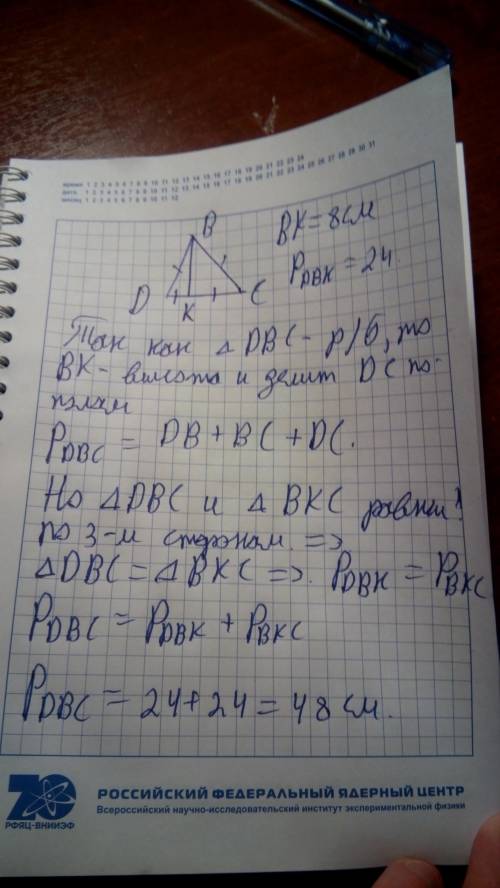 время 1 2 3 4 5 6 7 8 9 10 11 12 13 14 15 16 17 18 19 20 21 22 23 24
дата 1 2 3 4 5 6 7 8 9 10 11 12 13 14 15 16 17 18 19 20 21 22 23 24 25 26 27 28 29 30 31
месяц 1 2 3 4 5 6 7 8 9 10 11 12
B
BK = 8 см
P_DBK = 24
D
K
C
Так как △ DBC - р/б, то
BK - высота и делит DC по-
полам
P_DBC = DB + BC + DC.
Но △DBC и △ BKC равны
по 3-м сторонам =>
△DBC = △BKC => P_DBK = P_BKC
P_DBC = P_DBK + P_BKC
P_DBC = 24 + 24 = 48 см.
70
РФЯЦ-ВНИИЭФ
РОССИЙСКИЙ ФЕДЕРАЛЬНЫЙ ЯДЕРНЫЙ ЦЕНТР
Всероссийский научно-исследовательский институт экспериментальной физики